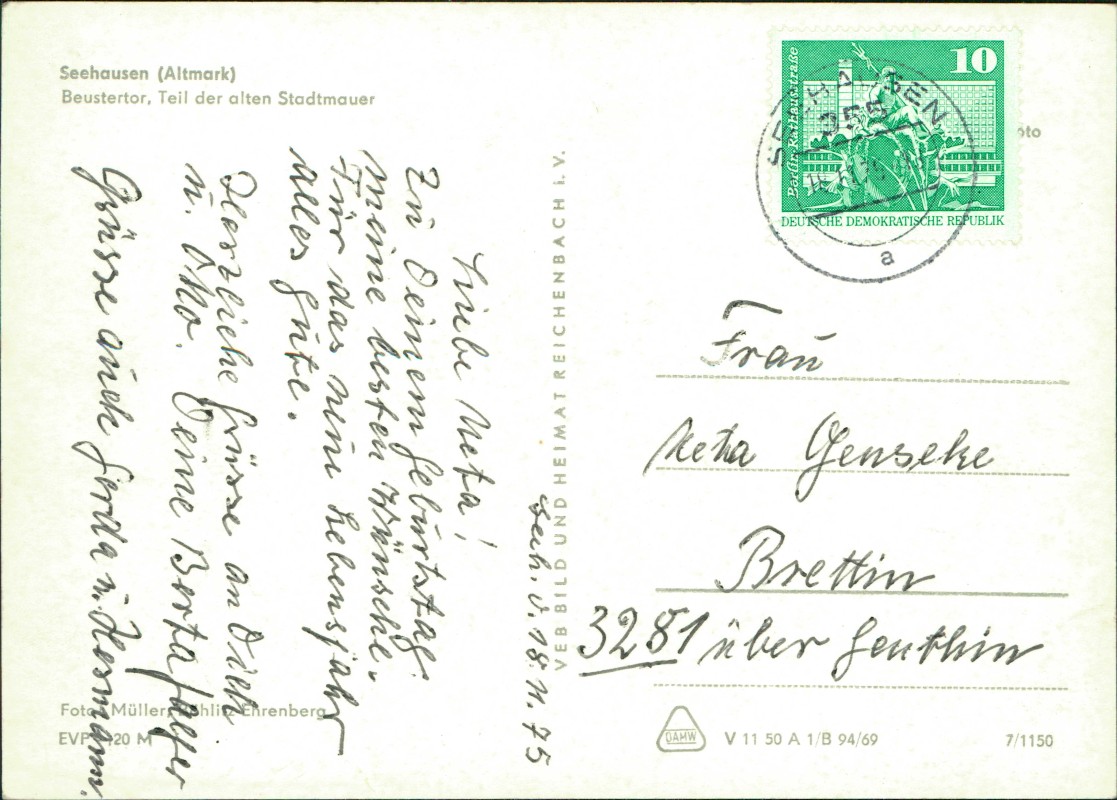 Seehausen (Altmark)
Beustertor, Teil der alten Stadtmauer
Seeh. d. 18. 11. 75
Liebe Meta!
Zu Deinem Geburtstag
meine besten Wünsche.
Für das neue Lebensjahr
alles Gute.
Herzliche Grüsse an Dich
u. Otto. Deine Berta
Grüsse auch Gerda u. Hermann.
Foto: Müller, Böhlitz-Ehrenberg
EVP 0,20 M
VEB BILD UND HEIMAT REICHENBACH i. V.
10
Berlin, Rathausstraße
DEUTSCHE DEMOKRATISCHE REPUBLIK
SEEHAUSEN
355
a
oto
Frau
Meta Genseke
Brettin
3281 über Genthin
DAMW
V 11 50 A 1/B 94/69
7/1150